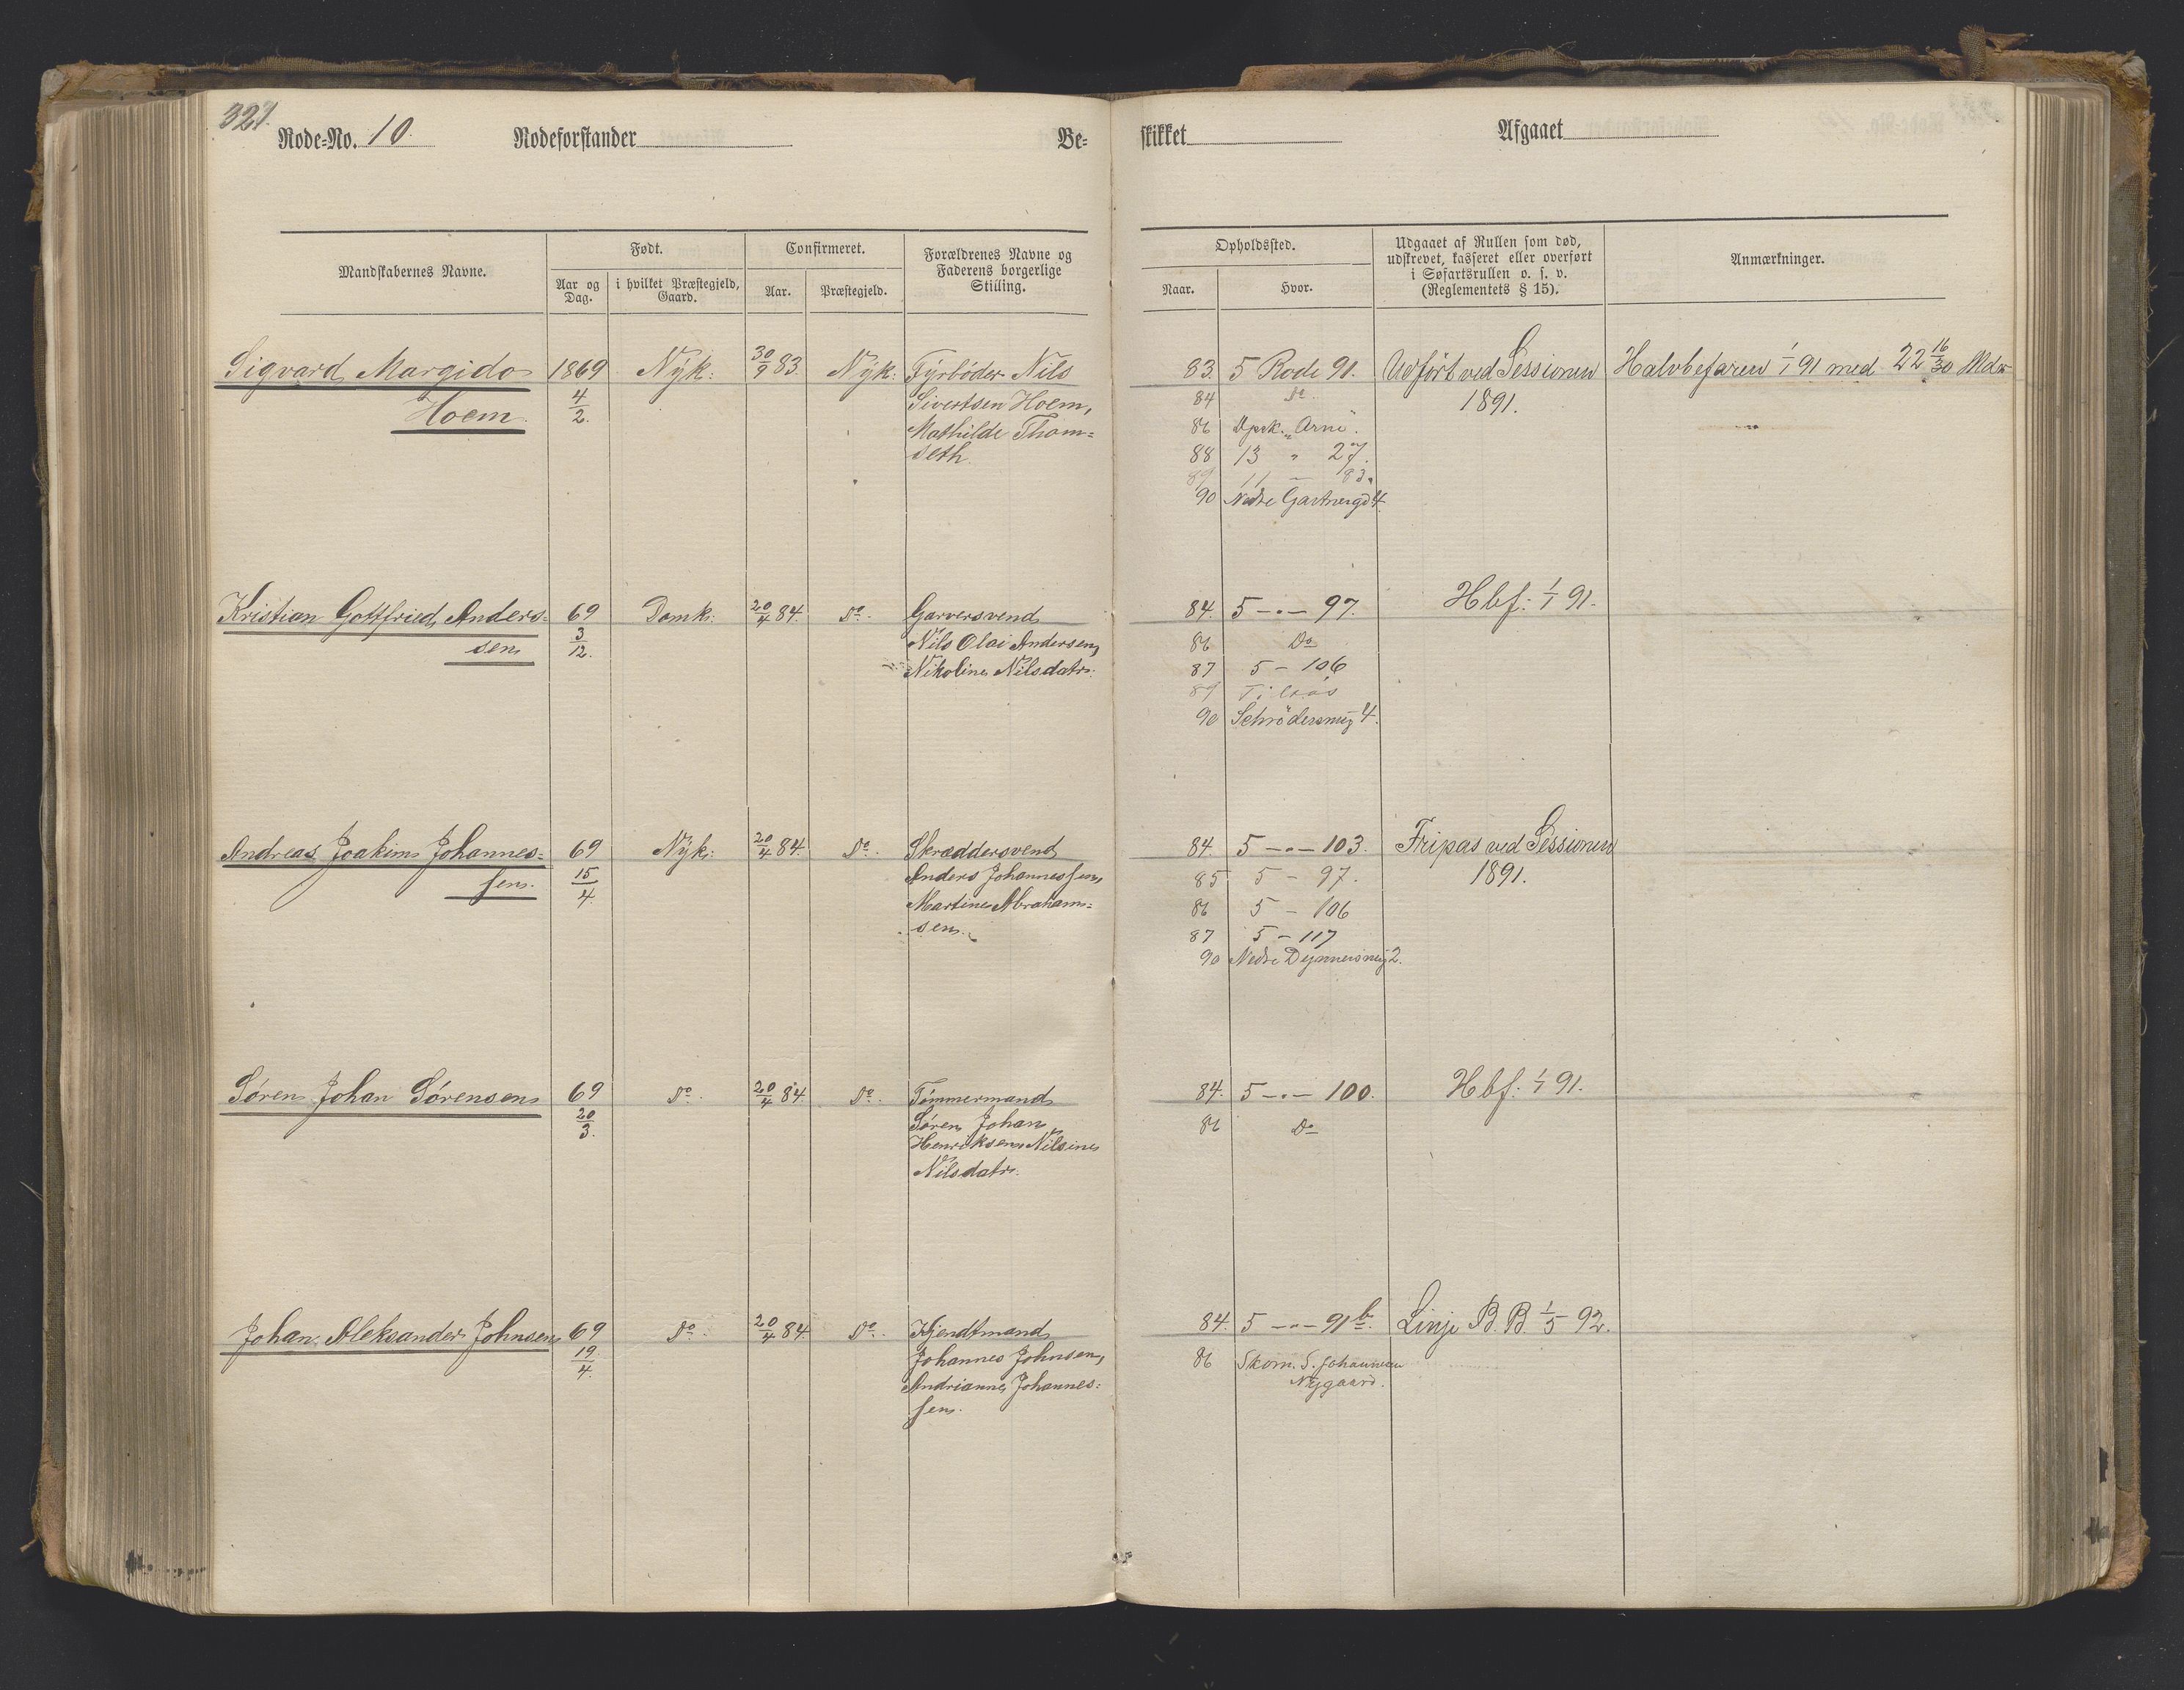 327.
Rode=No. 10. Rodeforstander Be=
skikket Afgaaet
Mandskabernes Navne. Født. Confirmeret. Forældrenes Navne og Faderens borgerlige Stilling.
Aar og Dag. i hvilket Præstegjeld, Gaard. Aar. Præstegjeld.
Opholdssted. Udgaaet af Rullen som død, udskrevet, kasseret eller overført i Søfartsrullen o. s. v. (Reglementets § 15). Anmærkninger.
Naar. Hvor.
Sigvard Margido 1869 Nÿk: 30/9 83. Nÿk: Fyrbøder Nils
Hoem. 4/2. Sivertsen Hoem,
Mathilde Thom=
seth.
83. 5 Rode 91. Udført ved Sessionen Halvbefaren 1/1 91 med 22 16/30 Mdr
84 do. 1891.
86 Dpsk. "Arne".
88 13 " 27.
89 11 — 83.
90 Nedre Gartnergd 4.
Kristian Gottfried Anders= 69 Domk: 20/4 84. do. Garversvend
sen 3/12. Nils Olai Andersen,
Nikoline Nilsdatr.
84. 5 -"- 97. Hbf: 1/1 91.
86 Do
87 5 - 106
89 Tilsøs
90 Schrödersmug 4.
Andreas Joakim Johannes= 69 Nÿk: 20/4 84. do. Skræddersvend
sen. 15/4. Anders Johannessen,
Martine Abraham=
sen.
84. 5 -"- 103. Fripas ved Sessionen
85 5 - 97. 1891.
86 5 - 106
87 5 - 117
90 Nedre Dynnersmug 2.
Søren Johan Sørensen 69 do. 20/4 84. do. Tømmermand
20/3. Søren Johan
Henriksen, Nilsine
Nilsdatr.
84. 5 -"- 100. Hbf: 1/1 91.
86 Do
Johan Aleksander Johnsen 69 do. 20/4 84. do. Hjendtmand
19/4. Johannes Johnsen,
Andrianne Johannes=
sen.
84. 5 -"- 91 b. Linje B. B. 1/5 92.
86 Skom. S. Johannesen
Nygaard.